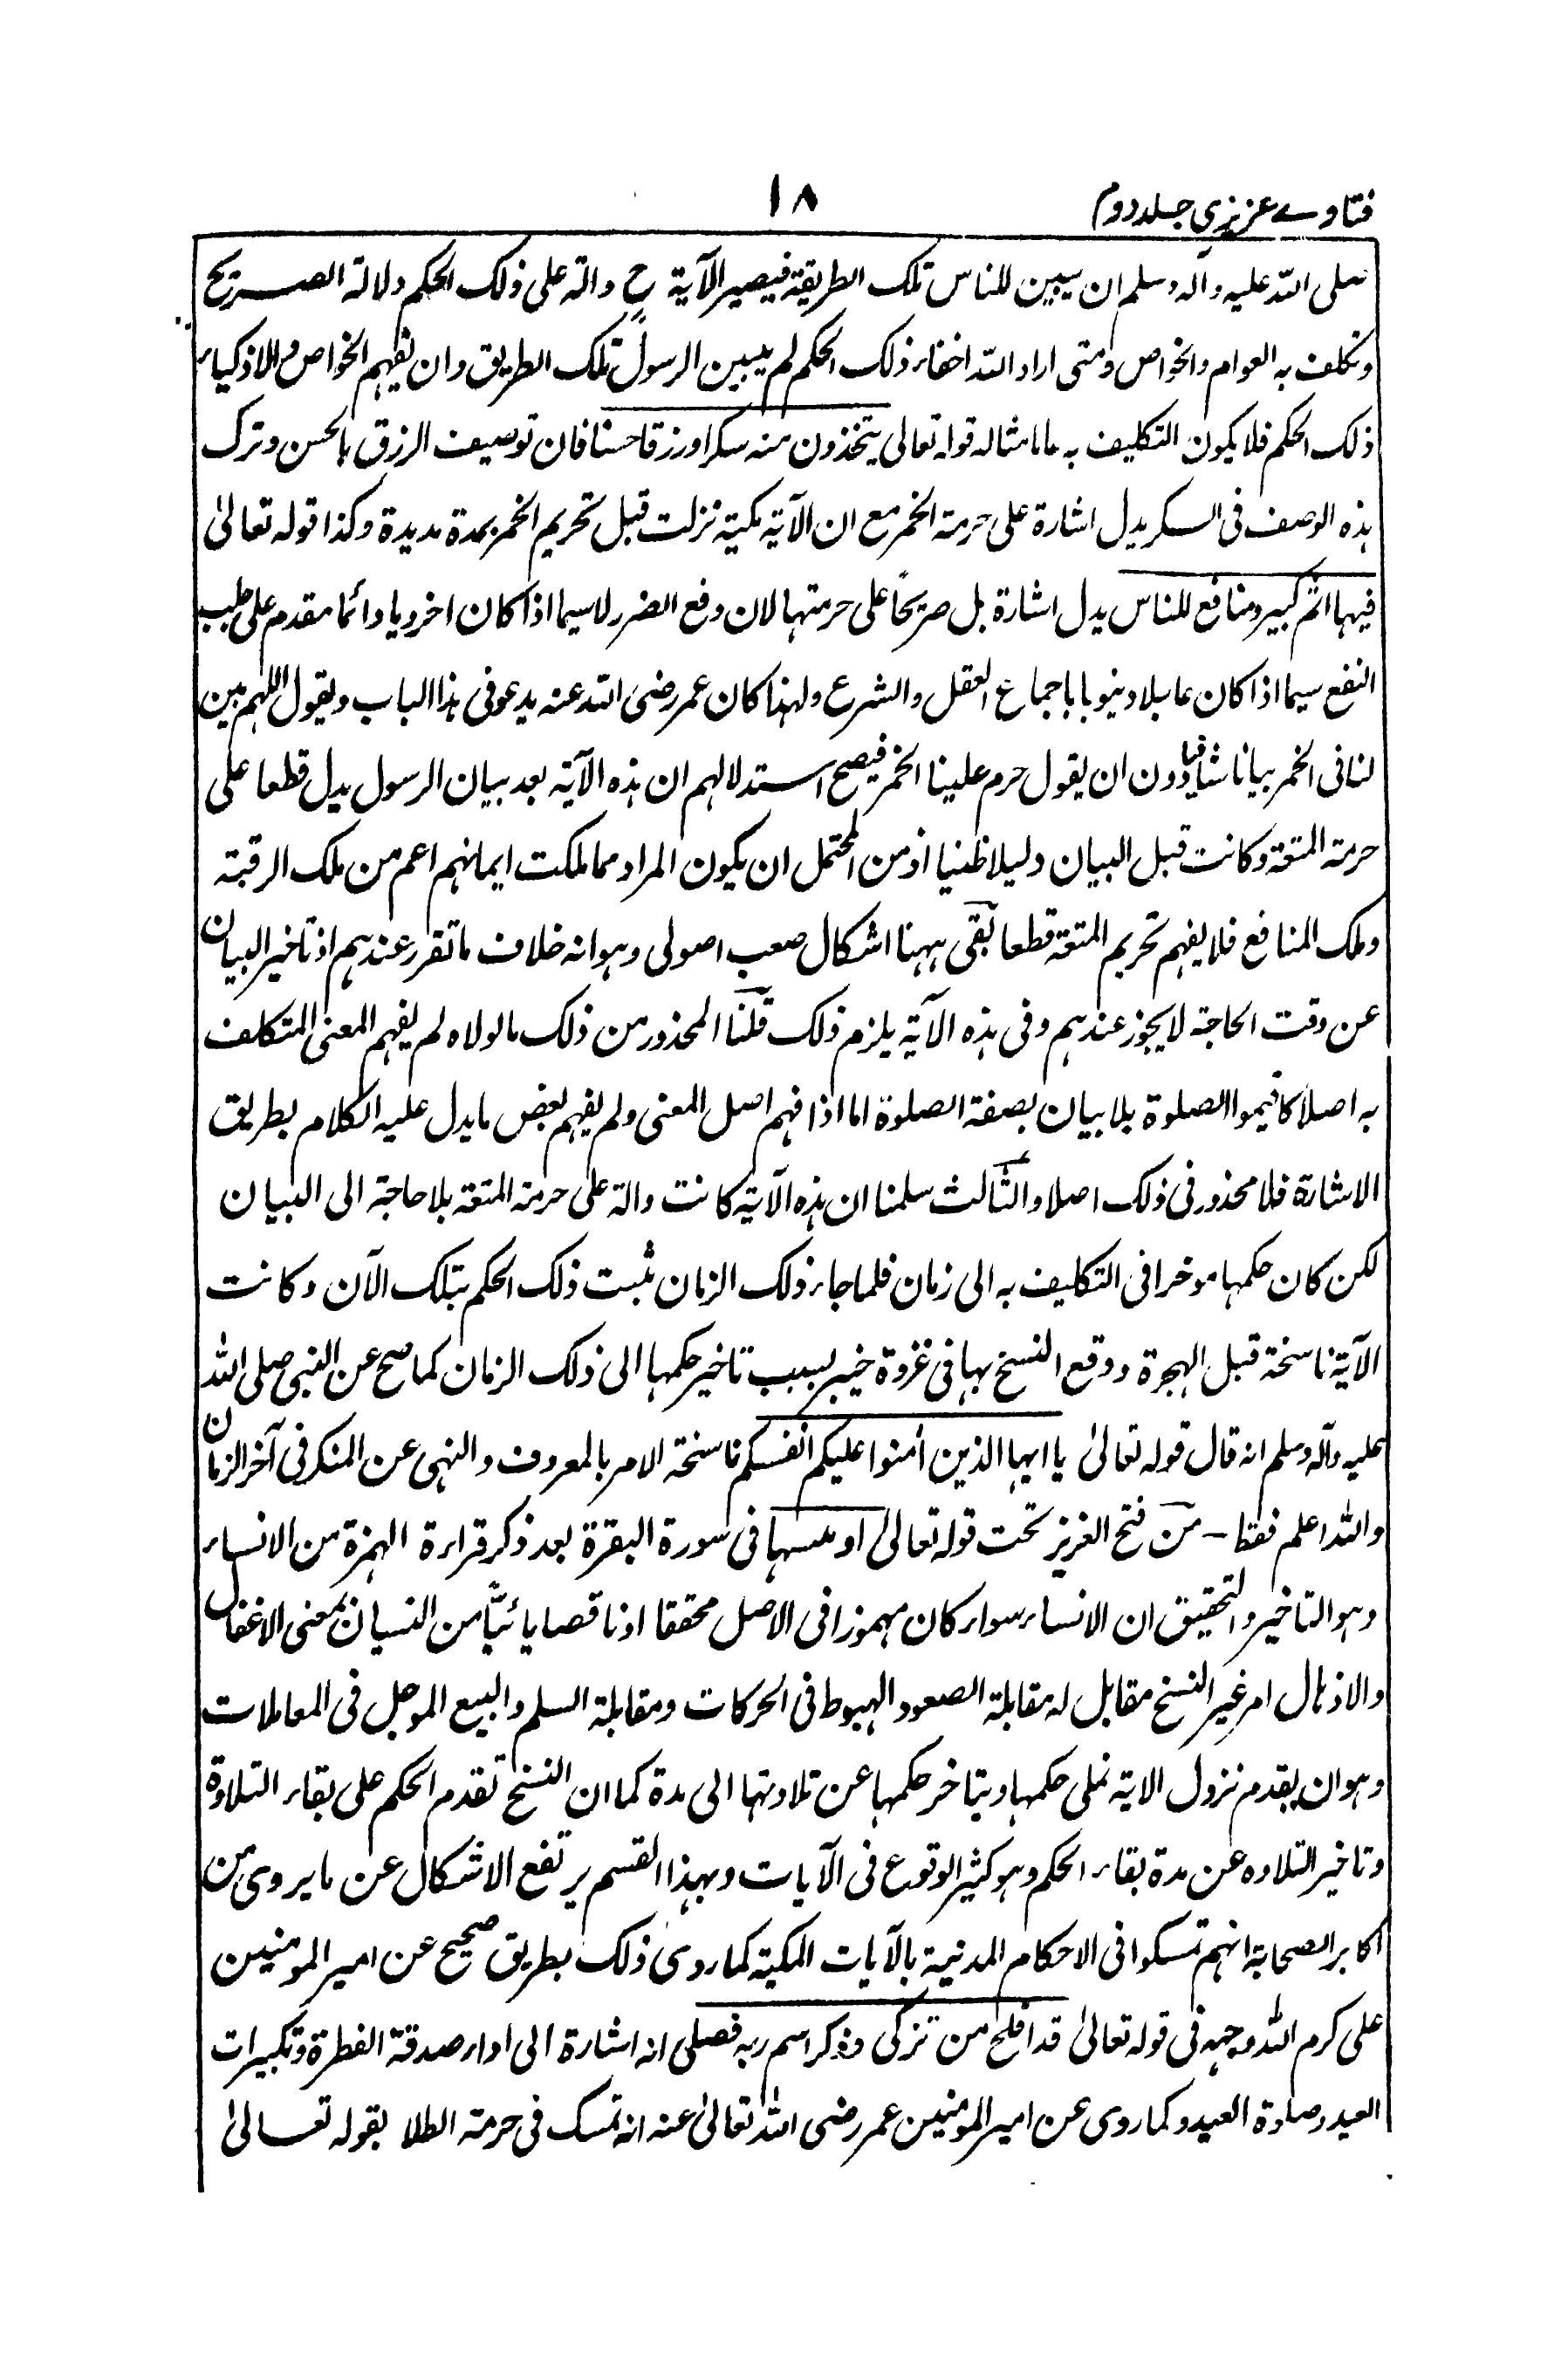 فتاوے عزیزی جلد دوم
۱۸
صلی اللہ علیہ وآلہ وسلم ان یبین للناس تلک الطریقۃ فیصیر الآیۃ ح دالۃ علی ذلک الحکم دلالۃ الصریح
وتکلف بہ العوام والخواص ومتی اراد اللہ اخفاء ذلک الحکم لم یبین الرسول تلک الطریق وان یفہم الخواص والاذکیاء
ذلک الحکم فلا یکون التکلیف بہ عاما مثالہ قولہ تعالی یتخذون منہ سکرا ورزقا حسنا فان توصیف الرزق بالحسن وترک
ہذہ الوصف فی السکر یدل اشارۃ علی حرمۃ الخمر مع ان الآیۃ مکیۃ نزلت قبل تحریم الخمر بمدۃ مدیدۃ وکذا قولہ تعالیٰ
فیہما اثم کبیر ومنافع للناس یدل اشارۃ بل صریحاً علی حرمتہا لان دفع الضرر لاسیما اذا کان اخرویا دائما مقدم علی طلب
النفع سیما اذا کان عاجلا دنیویا باجماع العقل والشرع ولہذا کان عمر رضی اللہ عنہ یدعو فی ہذا الباب ویقول اللہم بین
لنا فی الخمر بیانا شافیا دون ان یقول حرم علینا الخمر فیصح استدلالہم ان ہذہ الآیۃ بعد بیان الرسول یدل قطعا علی
حرمۃ المتعۃ وکانت قبل البیان دلیلا ظنیا اذ من المحتمل ان یکون المراد مما ملکت ایمانہم اعم من ملک الرقبۃ
وملک المنافع فلا یفہم تحریم المتعۃ قطعا بقی ہہنا اشکال صعب اصولی وہو انہ خلاف ما تقرر عندہم اذ تاخیر البیان
عن وقت الحاجۃ لا یجوز عندہم وفی ہذہ الآیۃ یلزم ذلک قلنا المحذور من ذلک ما لولاہ لم یفہم المعنی المتکلف
بہ اصلا کاقیموا الصلوۃ بلا بیان بصفۃ الصلوۃ اما اذا فہم اصل المعنی ولم یفہم بعض ما یدل علیہ الکلام بطریق
الاشارۃ فلا محذور فی ذلک اصلا والثالث سلمنا ان ہذہ الآیۃ کانت دالۃ علی حرمۃ المتعۃ بلا حاجۃ الی البیان
لکن کان حکمہا موخرا فی التکلیف بہ الی زمان فلما جاء ذلک الزمان ثبت ذلک الحکم بتلک الآن وکانت
الآیۃ ناسخۃ قبل الہجرۃ ووقع النسخ بہا فی غزوۃ خیبر بسبب تاخیر حکمہا الی ذلک الزمان کما صح عن النبی صلی اللہ
علیہ وآلہ وسلم انہ قال قولہ تعالیٰ یا ایہا الذین آمنوا علیکم انفسکم ناسخۃ الامر بالمعروف والنہی عن المنکر فی آخر الزمان
واللہ اعلم فقط – من فتح العزیز تحت قولہ تعالیٰ او ننسہا فی سورۃ البقرۃ بعد ذکر قراءۃ الہمزۃ من الانساء
وہو التاخیر والتحقیق ان الانساء سواء کان مہموزا فی الاصل محققا او ناقصا یائیاً من النسیان بمعنی الاغفال
والاذہال امر غیر النسخ مقابل لہ مقابلۃ الصعود الہبوط فی الحرکات ومقابلۃ السلم والبیع الموجل فی المعاملات
وہو ان یقدم نزول الایۃ علی حکمہا ویتاخر حکمہا عن تلاوتہا الی مدۃ کما ان النسخ تقدم الحکم علی بقاء التلاوۃ
وتاخیر التلاوہ عن مدۃ بقاء الحکم وہو کثیر الوقوع فی الآیات وبہذا القسم یرتفع الاشکال عن ما یروی من
اکابر الصحابۃ انہم تمسکوا فی الاحکام المدنیۃ بالآیات المکیۃ کما روی ذلک بطریق صحیح عن امیر المومنین
علی کرم اللہ وجہہ فی قولہ تعالیٰ قد افلح من تزکی وذکر اسم ربہ فصلی انہ اشارۃ الی اداء صدقۃ الفطرۃ وتکبیرات
العید وصلوۃ العید وکما روی عن امیر المومنین عمر رضی اللہ تعالیٰ عنہ انہ تمسک فی حرمۃ الطلا بقولہ تعالیٰ